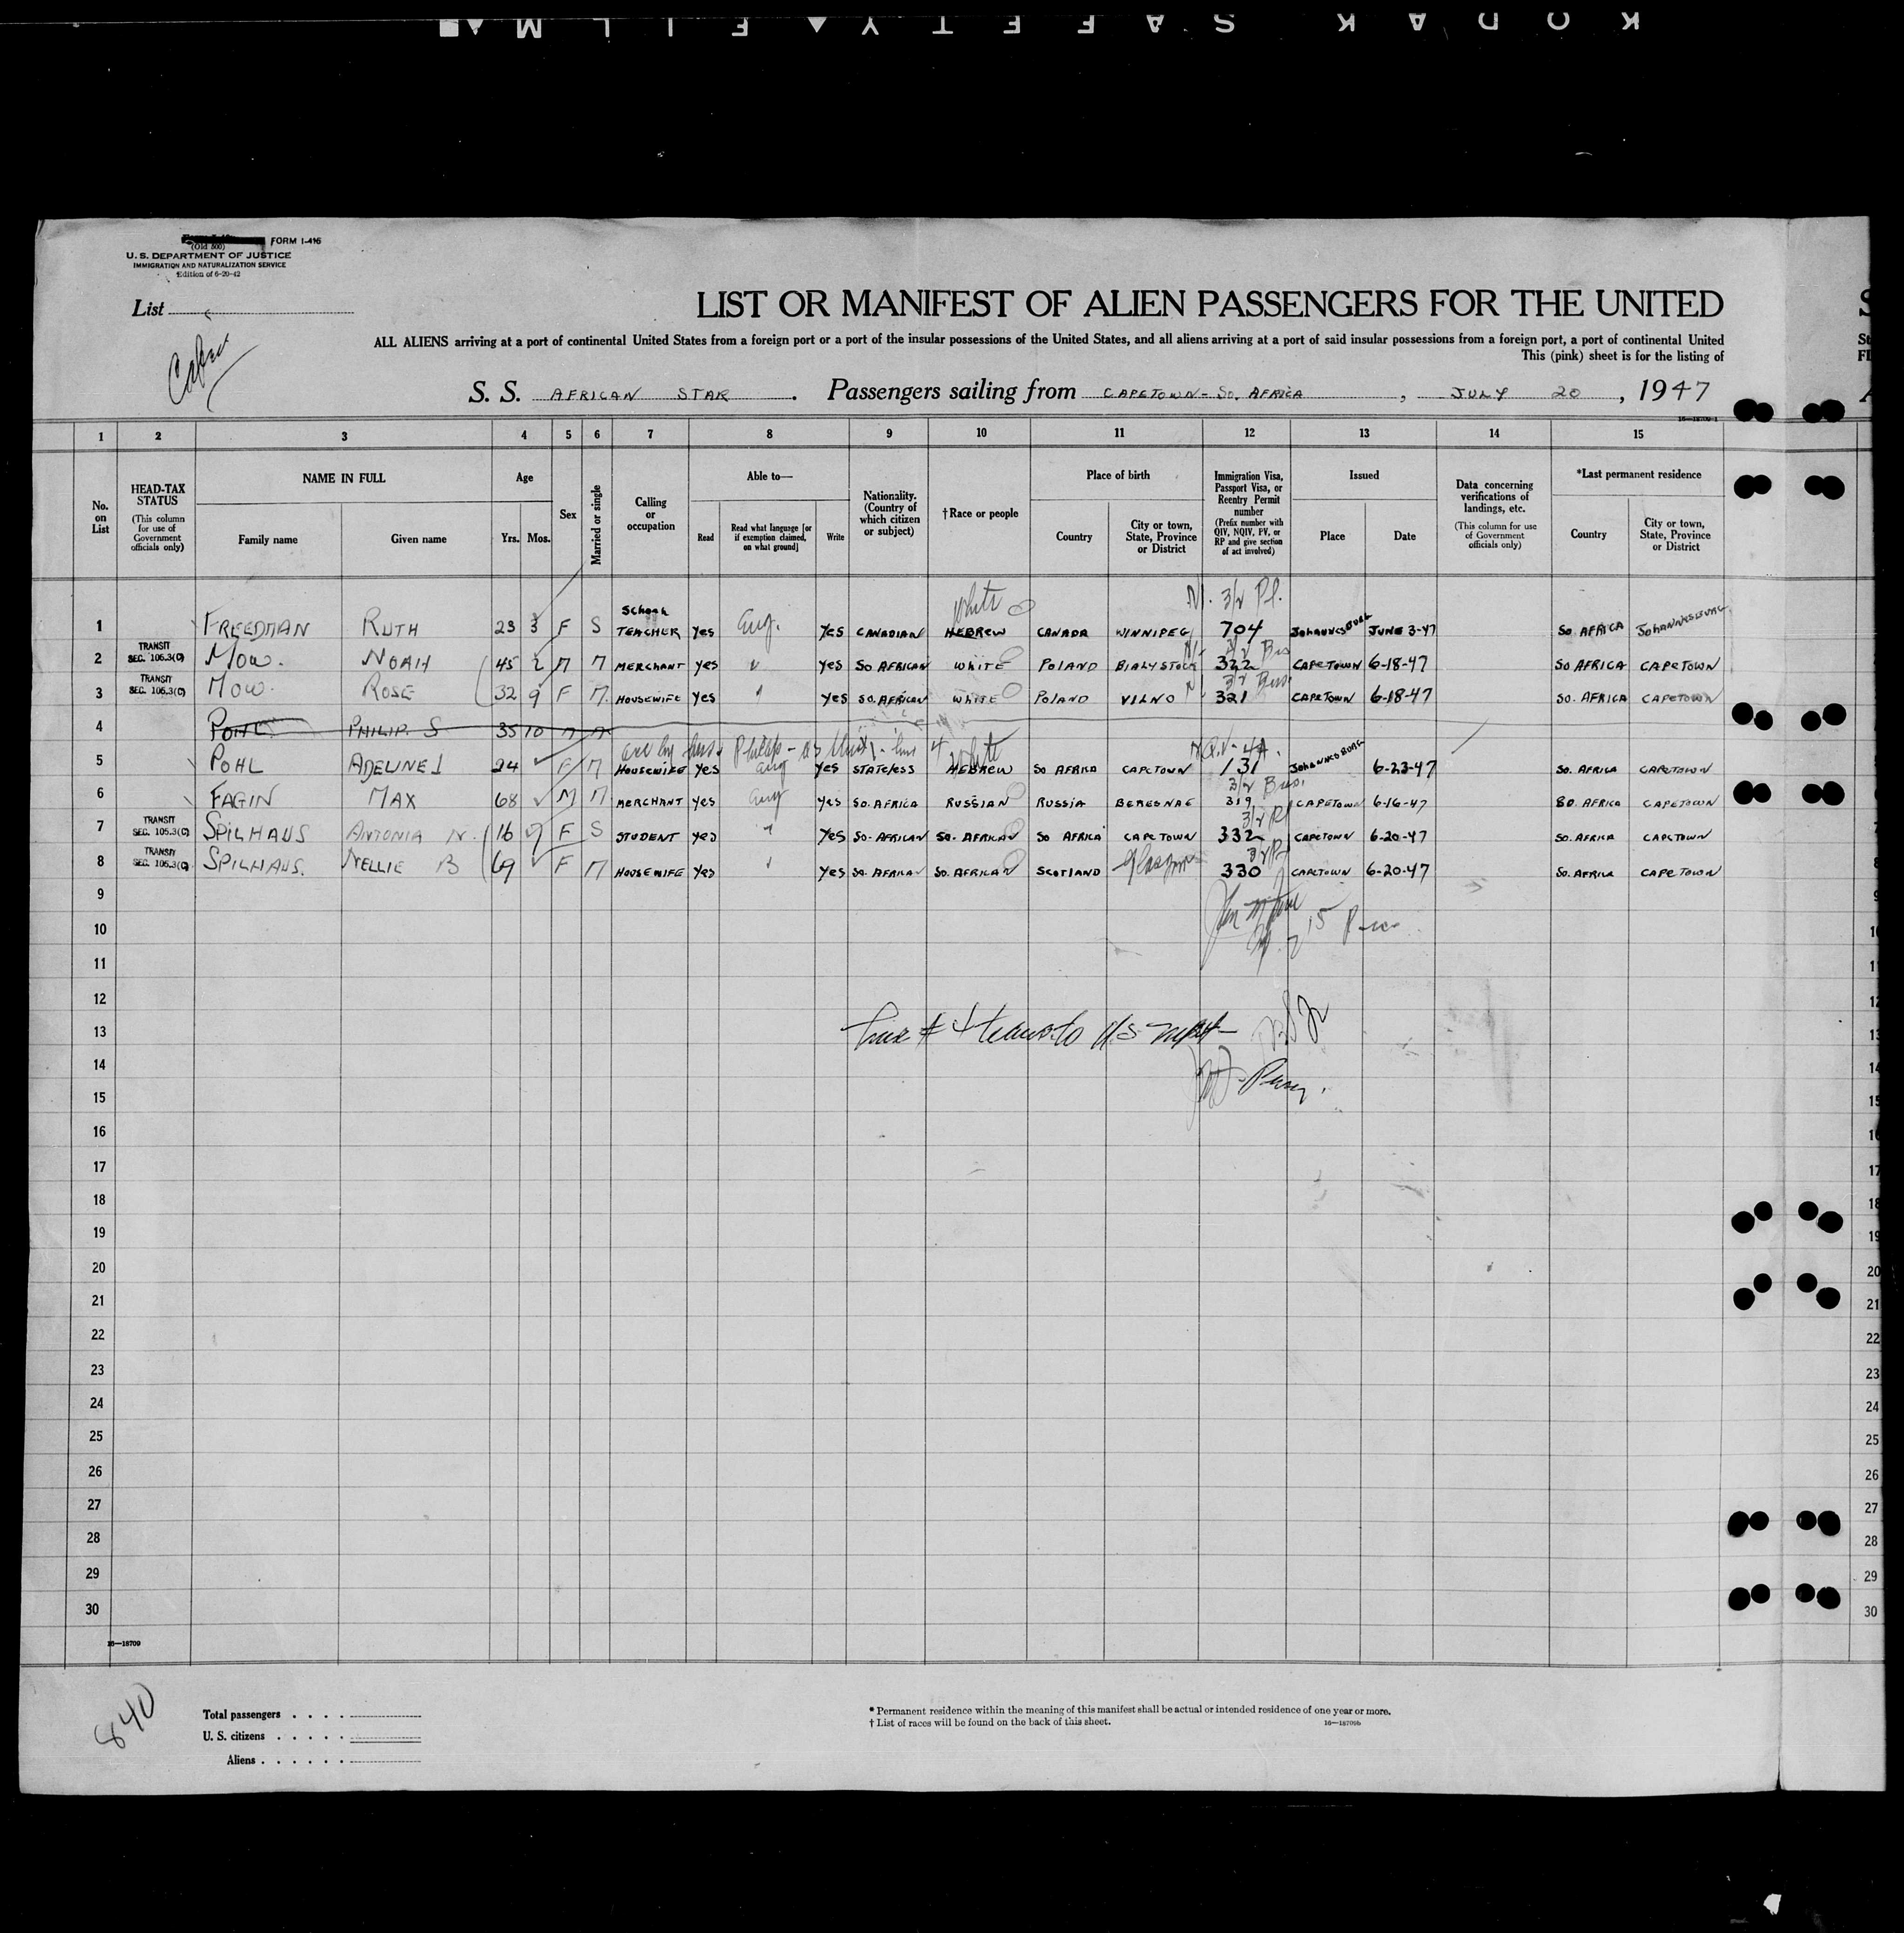 KODAK SAFETY FILM
FORM I-416
(Old 500)
U. S. DEPARTMENT OF JUSTICE
IMMIGRATION AND NATURALIZATION SERVICE
Edition of 6-20-42
List
LIST OR MANIFEST OF ALIEN PASSENGERS FOR THE UNITED
ALL ALIENS arriving at a port of continental United States from a foreign port or a port of the insular possessions of the United States, and all aliens arriving at a port of said insular possessions from a foreign port, a port of continental United
This (pink) sheet is for the listing of
S. S. AFRICAN STAR. Passengers sailing from CAPETOWN - SO. AFRICA, JULY 20, 1947
16—18709-1
1 2 3 4 5 6 7 8 9 10 11 12 13 14 15
No. on List
HEAD-TAX STATUS
(This column for use of Government officials only)
NAME IN FULL
Family name
Given name
Age
Yrs. Mos.
Sex
Married or single
Calling or occupation
Able to—
Read
Read what language [or if exemption claimed, on what ground]
Write
Nationality. (Country of which citizen or subject)
†Race or people
Place of birth
Country
City or town, State, Province or District
Immigration Visa, Passport Visa, or Reentry Permit number
(Prefix number with QIV, NQIV, PV, or RP and give section of act involved)
Issued
Place
Date
Data concerning verifications of landings, etc.
(This column for use of Government officials only)
*Last permanent residence
Country
City or town, State, Province or District
White
1 FREEDMAN RUTH 23 3 F S School TEACHER Yes Eng. Yes CANADIAN HEBREW CANADA WINNIPEG 704 JOHANNESBURG JUNE 3-47 SO AFRICA JOHANNESBURG
2 TRANSIT SEC. 105.3(C) MOW. NOAH 45 2 M M MERCHANT Yes Yes SO AFRICAN WHITE POLAND BIALYSTOCK 322 CAPETOWN 6-18-47 SO AFRICA CAPETOWN
3 TRANSIT SEC. 105.3(C) MOW. ROSE 32 9 F M. HOUSEWIFE Yes Yes SO. AFRICAN WHITE POLAND VILNO 321 CAPETOWN 6-18-47 SO. AFRICA CAPETOWN
4 POHL PHILIP. S 35 10 M M
white
5 POHL ADELINE I 24 F M HOUSEWIFE Yes Eng Yes STATELESS HEBREW SO AFRICA CAPETOWN 131 JOHANNESBURG 6-23-47 SO. AFRICA CAPETOWN
6 FAGIN MAX 68 M M MERCHANT Yes Eng Yes SO. AFRICA RUSSIAN RUSSIA BERESNAE 319 CAPETOWN 6-16-47 SO. AFRICA CAPETOWN
7 TRANSIT SEC. 105.3(C) SPILHAUS ANTONIA N. 16 F S STUDENT Yes Yes SO. AFRICAN SO. AFRICAN SO AFRICA CAPETOWN 332 CAPETOWN 6-20-47 SO. AFRICA CAPETOWN
8 TRANSIT SEC. 105.3(C) SPILHAUS. NELLIE B 69 F M HOUSEWIFE Yes Yes SO. AFRICAN SO. AFRICAN SCOTLAND Glasgow 330 CAPETOWN 6-20-47 SO. AFRICA CAPE TOWN
9
10
11
12
13
14
15
16
17
18
19
20
21
22
23
24
25
26
27
28
29
30
16—18709
840
Total passengers
U. S. citizens
Aliens
* Permanent residence within the meaning of this manifest shall be actual or intended residence of one year or more.
† List of races will be found on the back of this sheet.
16—18709b